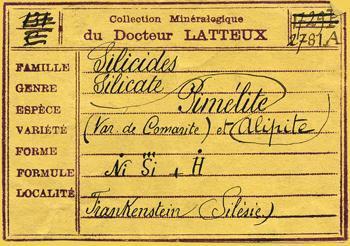 Collection Minéralogique
du Docteur LATTEUX
2781A
FAMILLE Silicides
GENRE Silicate
ESPÈCE Pimélite
VARIÉTÉ (Var. de Comarite) et Alipite
FORME
FORMULE Ni Si + H
LOCALITÉ Frankenstein (Silésie.)